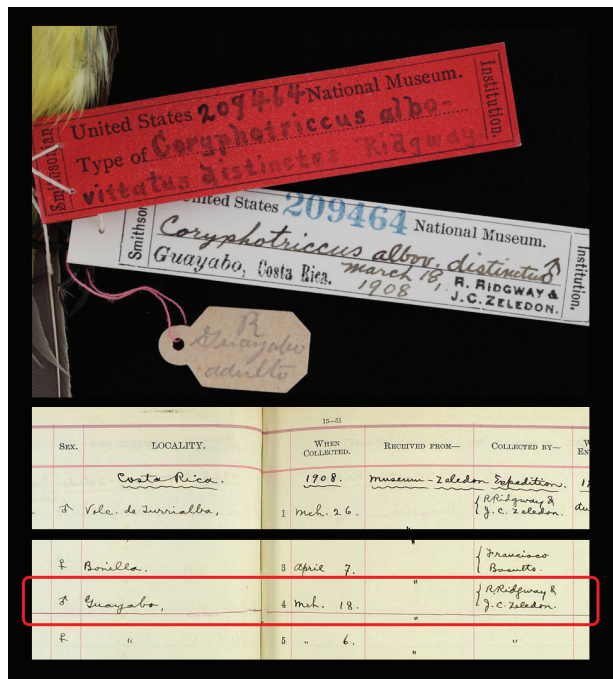 Smithsonian
United States 209464 National Museum.
Type of Coryphotriccus albo-
vittatus distinctus Ridgway
Institution.
Smithson
United States 209464 National Museum.
Coryphotriccus albov. distinctus ♂
Guayabo, Costa Rica. March 18,
1908
R. RIDGWAY &
J. C. ZELEDON.
Institution.
R
Guayabo
adulto
15—51
SEX. LOCALITY. WHEN COLLECTED. RECEIVED FROM— COLLECTED BY— W
EN
Costa Rica. 1908. Museum-Zeledon Expedition. 19
♂ Volc. de Turrialba, 1 Mch. 26. " { R. Ridgway &
J. C. Zeledon. du
♀ Bonilla. 3 April 7. " { Francisco
Basulto.
♂ Guayabo, 4 Mch. 18. " { R. Ridgway &
J. C. Zeledon.
♀ " 5 " 6. " "